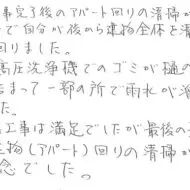 事完了後のアパート回りの清掃が
で自分が後から建物全体を清
回りました。
高圧洗浄機でのゴミが樋の
詰まって一部の所で雨れが滞
た。
工事は満足でしたが最後の
生物(アパート)回りの清掃が
念でした。